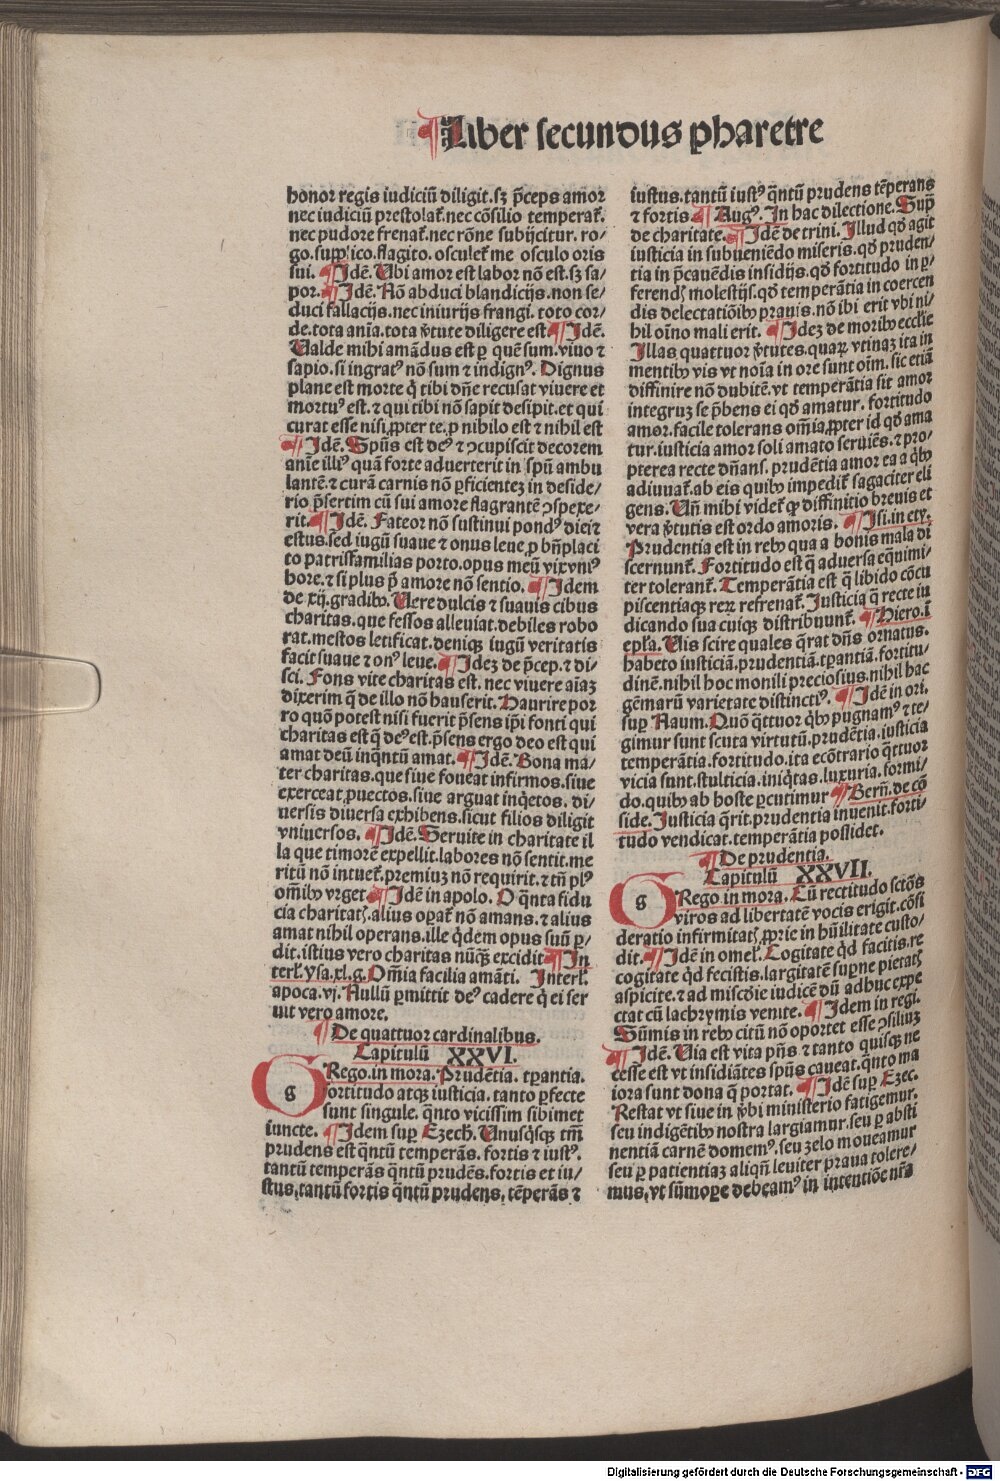 ¶Liber secundus pharetre
honor regis iudiciū diligit. sꝫ p̄ceps amor
nec iudiciū prestolat̄. nec cōsilio temperat̄.
nec pudore frenat̄. nec rōne subijcitur. ro-
go. supplico. flagito. osculet̄ me osculo oris
sui. ¶Idē. Ubi amor est labor nō est. sꝫ sa-
por. ¶Idē. Nō abduci blandicijs. non se-
duci fallacijs. nec iniurijs frangi. toto cor-
de. tota aīa. tota v̄tute diligere est. ¶Idē.
Valde mihi amādus est ꝑ quē sum. viuo ⁊
sapio. si ingratꝰ nō sum ⁊ indignꝰ. Dignus
plane est morte q̄ tibi dn̄e recusat viuere et
mortuꝰ est. ⁊ qui tibi nō sapit desipit. et qui
curat esse nisi ꝓpter te. p nibilo est ⁊ nibil est
¶Idē. Spūs est deꝰ ⁊ ꝯcupiscit decorem
anīe illiꝰ quā forte aduerterit in spū ambu
lantē. ⁊ curā carnis nō ꝑficientez in deside-
rio p̄sertim cū sui amore flagrantē ꝯspexe-
rit. ¶Idē. Fateor nō sustinui pondꝰ diei ⁊
estus. sed iugū suaue ⁊ onus leue. p bn̄placi
to patrisfamilias porto. opus meū vix vniꝰ
hore. ⁊ si plus p̄ amore nō sentio. ¶Idem
de xij. gradibꝰ. Vere dulcis ⁊ suauis cibus
charitas. que fessos alleuiat. debiles robo
rat. mestos letificat. deniqꝫ iugū veritatis
facit suaue ⁊ onꝰ leue. ¶Idez de p̄cep. ⁊ di-
sci. Fons vite charitas est. nec viuere aīaꝫ
dixerim q̄ de illo nō hauserit. Haurire por
ro quō potest nisi fuerit p̄sens ip̄i fonti qui
charitas est q̄ deꝰ est. p̄sens ergo deo est qui
amat deū inq̄ntū amat. ¶Idē. Bona ma-
ter charitas. que siue foueat infirmos. siue
exerceat ꝓuectos. siue arguat inq̄etos. di-
uersis diuersa exhibens. sicut filios diligit
vniuersos. ¶Idē. Seruite in charitate il
la que timorē expellit. labores nō sentit. me
ritū non intuet̄. premiuꝫ nō requirit. ⁊ tn̄ plꝰ
om̄ibꝰ vrget. ¶Idē in apolo. O q̄nta fidu
cia charitatꝭ. alius opat̄ nō amans. ⁊ alius
amat nihil operans. ille q̄dem opus suū ꝑ-
dit. istius vero charitas nūqꝫ excidit. ¶In
terl̄. ysa. xl. g. Om̄ia facilia amāti. Interl̄.
apoca. vj. Nullū ꝑmittit deꝰ cadere q̄ ei ser
uit vero amore.
¶De quattuor cardinalibus.
Capitulū XXVI.
gRego. in mora. Prudētia. tꝑantia.
ortitudo atqꝫ iusticia. tanto ꝑfecte
sunt singule. q̄nto vicissim sibimet
iuncte. ¶Idem sup Ezech. Unusq̄sqꝫ tm̄
prudens est q̄ntū temperās. fortis ⁊ iustꝰ.
tantū temperās q̄ntū prudēs. fortis et iu-
stus, tantū fortis q̄ntū prudens, tēperās ⁊
iustus. tantū iustꝰ q̄ntū prudens tēperans
⁊ fortis ¶Augꝰ. In hac dilectione. Sup
de charitate. ¶Idē de trini. Illud qd̄ agit
iusticia in subueniēdo miseris. qd̄ pruden-
tia in p̄cauēdis insidijs. qd̄ fortitudo in ꝑ-
ferendꝭ molestijs. qd̄ temperātia in coercen
dis delectatiōibꝰ prauis. nō ibi erit vbi ni-
hil oīno mali erit. ¶Idez de moribꝰ ecclie
Illas quattuor v̄tutes. quaꝝ vtinaꝫ ita in
mentibꝰ vis vt noīa in ore sunt oīm. sic etiā
diffinire nō dubitē. vt temperātia sit amor
integruꝫ se p̄bens ei qd̄ amatur. fortitudo
amor. facile tolerans om̄ia ꝓpter id qd̄ ama
tur. iusticia amor soli amato seruiēs. ⁊ pro-
pterea recte dn̄ans. prudētia amor ea a q̄bꝰ
adiuuat̄. ab eis quibꝰ impedit̄ sagaciter eli
gens. Un̄ mihi videt̄ ꝙ diffinitio breuis et
vera v̄tutis est ordo amoris. ¶Isi. in ety.
Prudentia est in rebꝰ qua a bonis mala di
scernunt̄. Fortitudo est q̄ aduersa eq̄nimi-
ter tolerant̄. Temperātia est q̄ libido cōcu
piscentiaqꝫ reꝝ refrenat̄. Iusticia q̄ recte iu
dicando sua cuiqꝫ distribuunt̄. ¶Hiero. ī
epl̄a. Vis scire quales q̄rat dn̄s ornatus.
habeto iusticiā. prudentiā. tꝑantiā. fortitu-
dinē. nihil hoc monili preciosius. nihil hac
gēmarū varietate distinctiꝰ. ¶Idē in ori.
sup Naum. Quō q̄ttuor q̄bꝰ pugnamꝰ ⁊ te-
gimur sunt scuta virtutū. prudētia. iusticia
temperātia. fortitudo. ita ecōtrario q̄ttuor
vicia sunt. stulticia. iniq̄tas. luxuria. formi-
do. quibꝰ ab hoste ꝑcutimur ¶Bern̄. de cō
side. Iusticia q̄rit. prudentia inuenit. forti-
tudo vendicat. temperātia possidet.
¶De prudentia.
Capitulū XXVII.
gRego. in mora. Cū rectitudo sctōs
viros ad libertatē vocis erigit. cōsi
deratio infirmitatꝭ ꝓprie in hūilitate custo-
dit. ¶Idē in omel̄. Cogitate q̄d facitis. re
cogitate q̄d fecistis. largitatē suꝑne pietatꝭ
aspicite. ⁊ ad miscdīe iudicē dū adhuc expe
ctat cū lachrymis venite. ¶Idem in regi.
Sūmis in rebꝰ citū nō oportet esse ꝯsiliuꝫ
¶Idē. Via est vita pn̄s ⁊ tanto quisqꝫ ne
cesse est vt insidiātes spūs caueat. q̄nto ma
iora sunt dona q̄ portat. ¶Idē sup Ezec.
Restat vt siue in v̄bi ministerio fatigemur.
seu indigētibꝰ nostra largiamur. seu ꝑ absti
nentiā carnē domemꝰ. seu zelo moueamur
seu ꝑ patientiaꝫ aliqn̄ leuiter praua tolere-
mus, vt sūmoꝑe debeamꝰ in intentiōe nr̄a
Digitalisierung gefördert durch die Deutsche Forschungsgemeinschaft - DFG